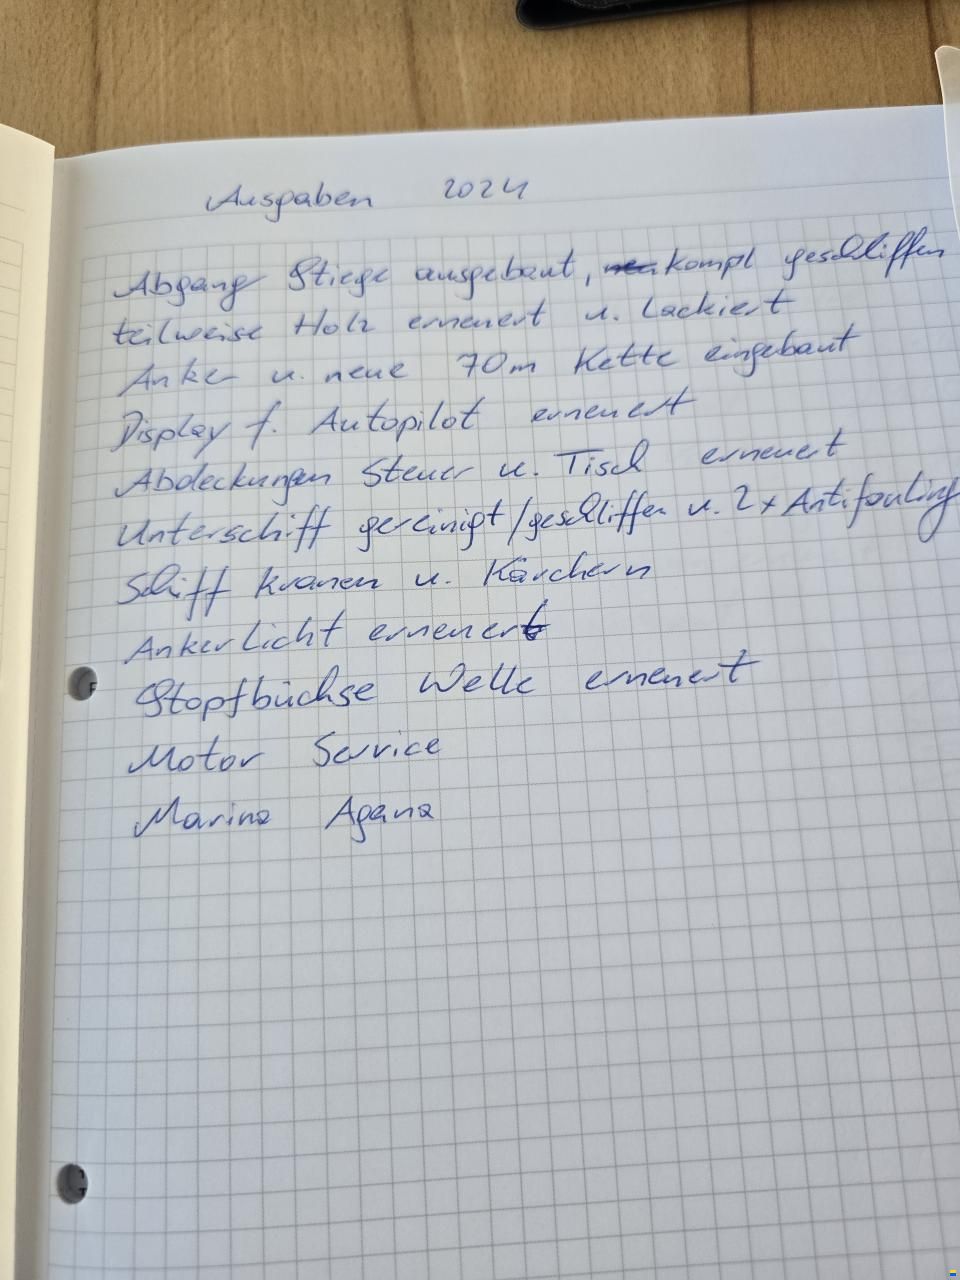 Ausgaben 2024
Abgang Stiege ausgebaut, kompl geschliffen
teilweise Holz erneuert u. Lackiert
Anker u. neue 70m Kette eingebaut
Display f. Autopilot erneuert
Abdeckungen Steuer u. Tisch erneuert
Unterschiff gereinigt/geschliffen u. 2x Antifouling
Schiff kranen u. Kärchern
Ankerlicht erneuert
Stopfbüchse Welle erneuert
Motor Service
Marina Agana